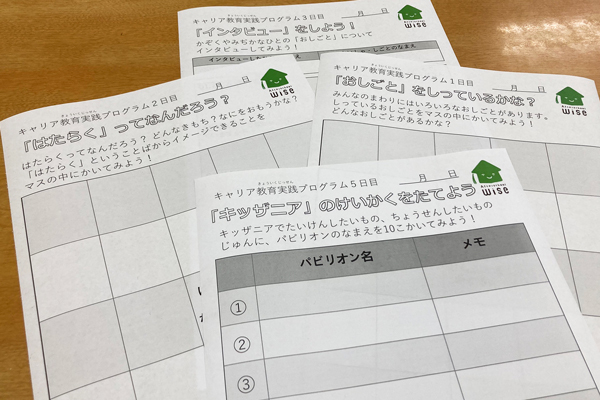 キャリア教育実践プログラム3日目
きょういくじっせん
月 日
『インタビュー』をしよう!
かぞくやみぢかなひとの「おしごと」について
インタビューしてみよう!
wise
キャリア教育実践プログラム2日目
きょういくじっせん
月 日
『はたらく』ってなんだろう?
はたらくってなんだろう?どんなきもち?なにをおもうかな?
「はたらく」ということばからイメージできることを
マスの中にかいてみよう!
wise
キャリア教育実践プログラム1日目
きょういくじっせん
月 日
『おしごと』をしっているかな?
みんなのまわりにはいろいろなおしごとがあります。
しっているおしごとをマスの中にかいてみよう!
どんなおしごとがあるかな?
wise
キャリア教育実践プログラム5日目
きょういくじっせん
月 日
『キッザニア』のけいかくをたてよう
キッザニアでたいけんしたいもの、ちょうせんしたいもの
じゅんに、パビリオンのなまえを10こかいてみよう!
wise
パビリオン名 メモ
①
②
③